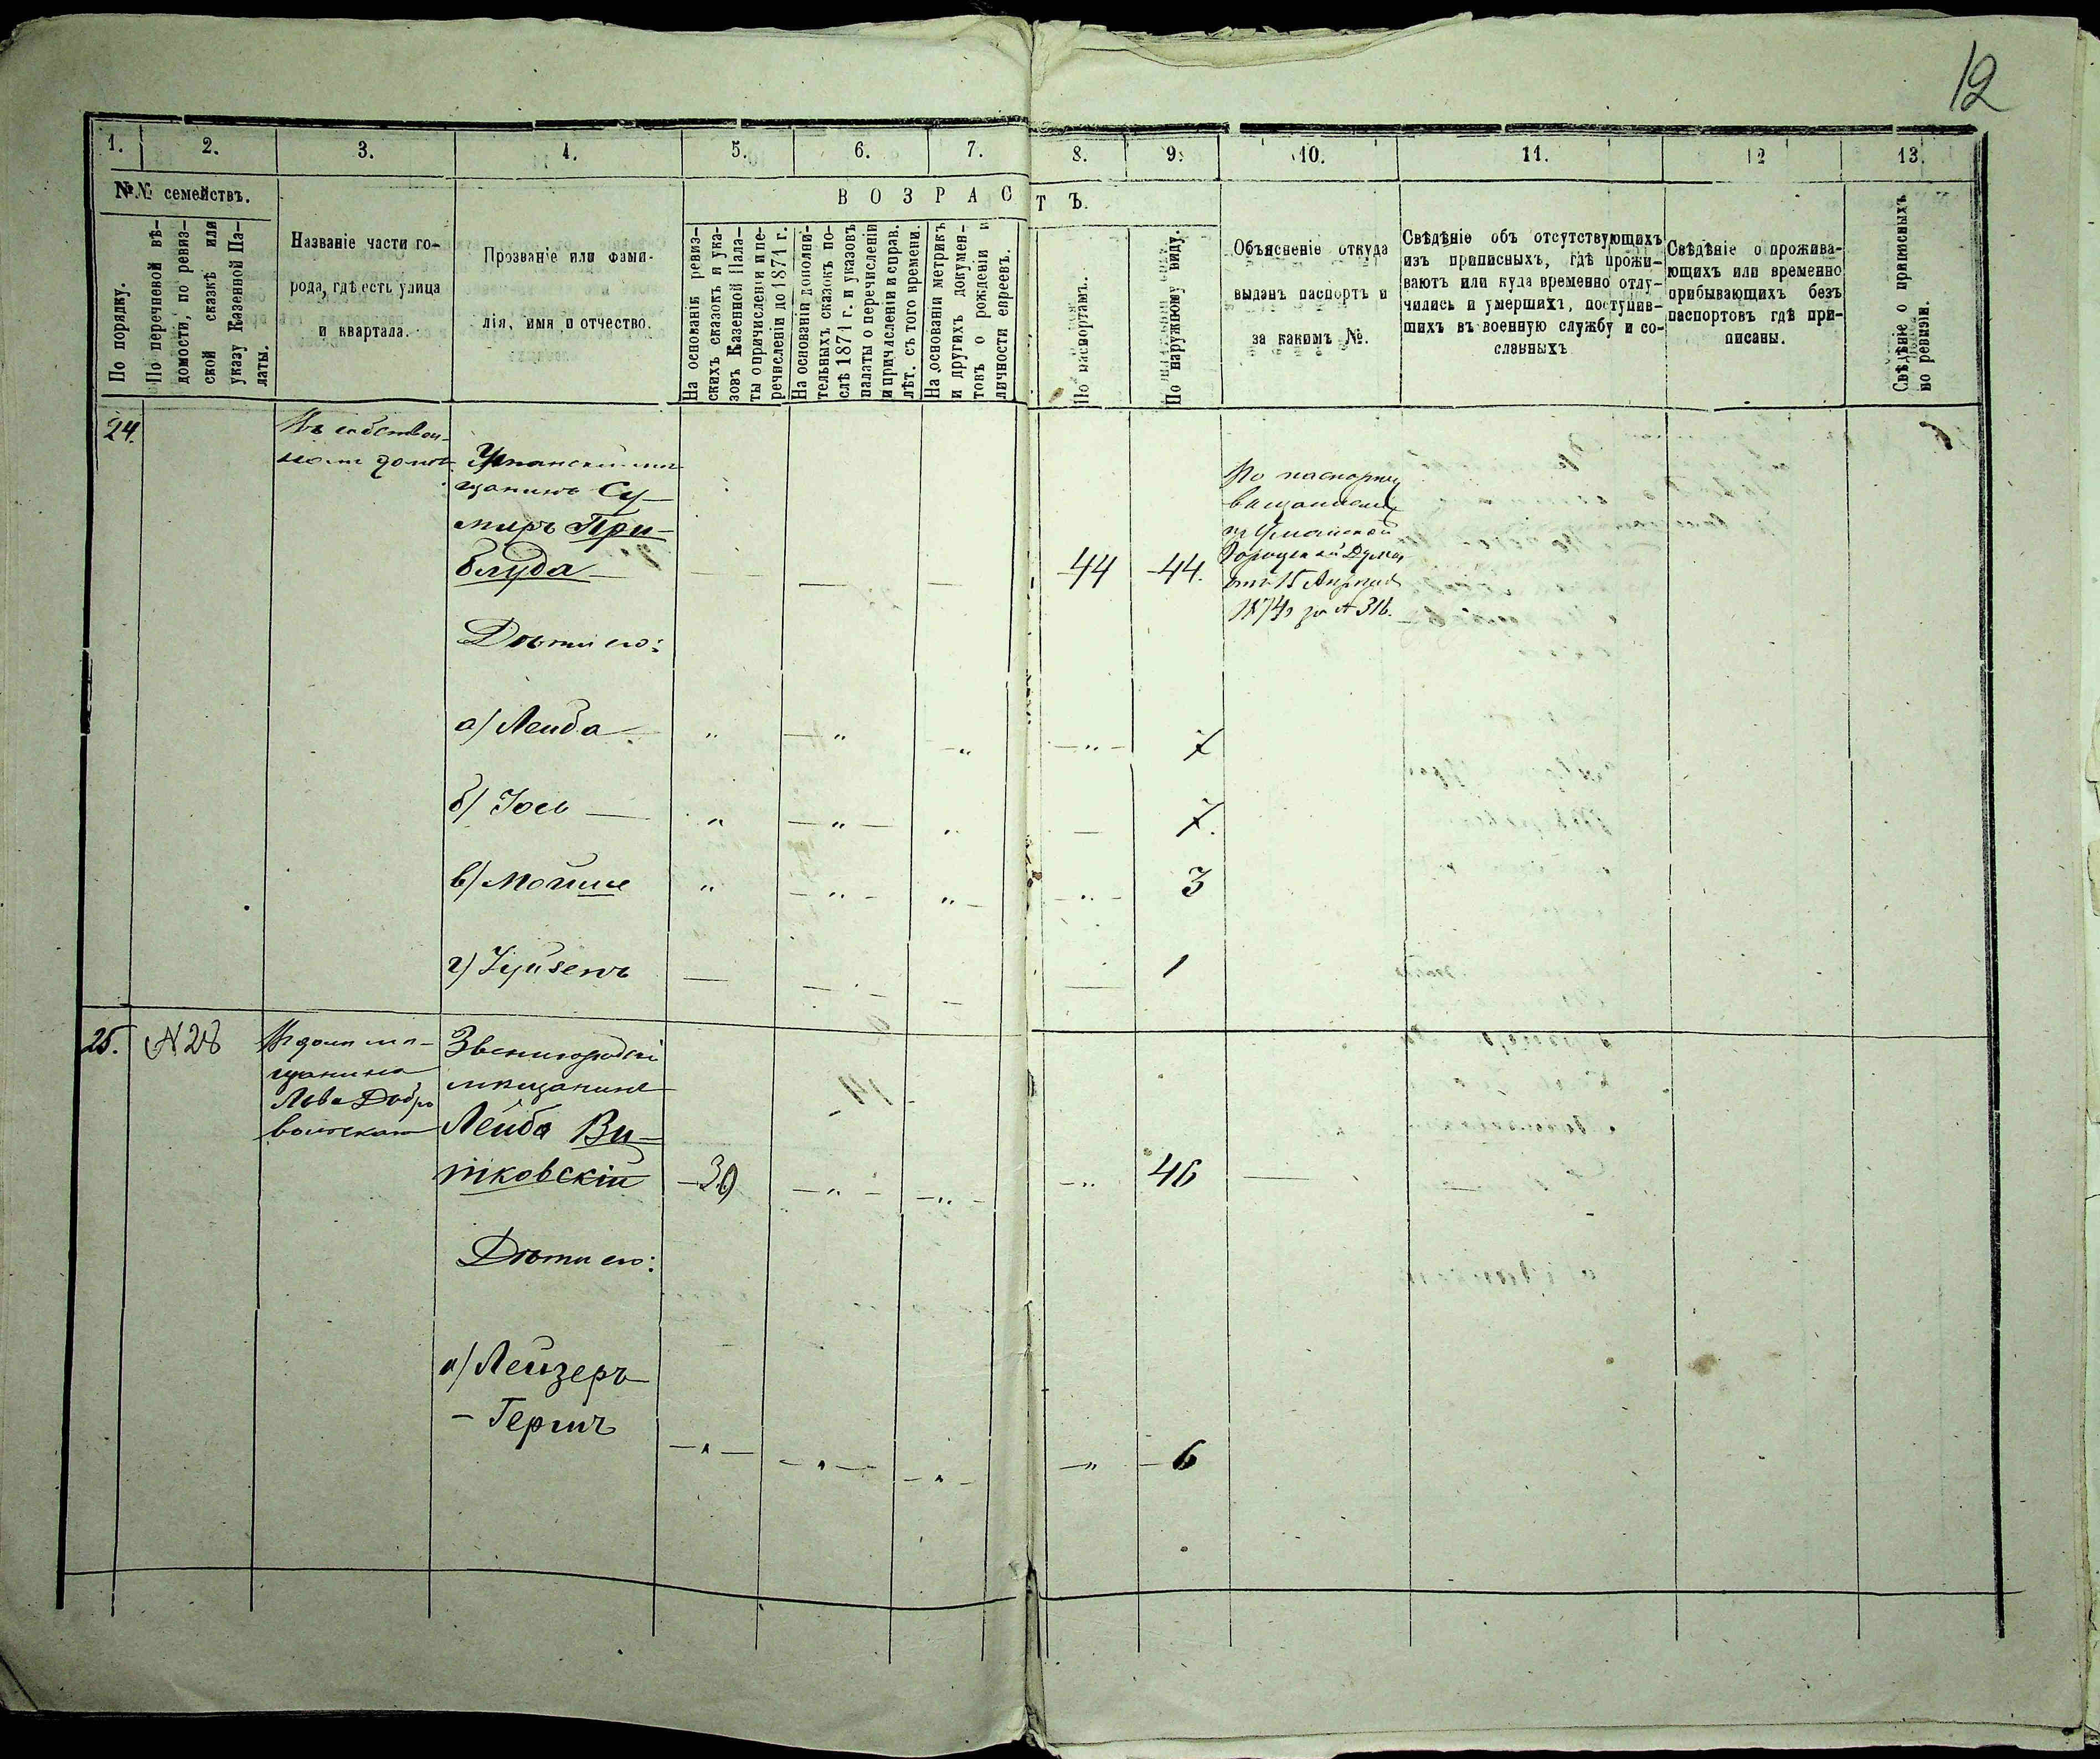 12
1. 2. 3. 4. 5. 6. 7. 8. 9. 10. 11. 12 13.
№№ семействъ.
По порядку.
По перечневой вѣ-
домости, по ревиз-
ской сказкѣ или
указу Казенной Па-
латы.
Названіе части го-
рода, гдѣ есть улица
и квартала.
Прозваніе или фами-
лія, имя и отчество.
ВОЗРАСТЪ.
На основаніи ревиз-
скихъ сказокъ и ука-
зовъ Казенной Пала-
ты о причисленіи и пе-
речисленіи до 1871 г.
На основаніи дополни-
тельныхъ сказокъ по-
слѣ 1871 г. и указовъ
палаты о перечисленіи
и причисленіи и справ.
лѣт. съ того времени.
На основаніи метрикъ
и другихъ докумен-
товъ о рожденіи и
личности евреевъ.
По паспортамъ.
По наружному виду.
Объясненіе откуда
выданъ паспортъ и
за какимъ №.
Свѣдѣніе объ отсутствующихъ
изъ приписныхъ, гдѣ прожи-
ваютъ или куда временно отлу-
чились и умершихъ, поступив-
шихъ въ военную службу и со-
сланныхъ
Свѣдѣніе о прожива-
ющихъ или временно
прибывающихъ безъ
паспортовъ гдѣ при-
писаны.
Свѣдѣніе о приписныхъ
по ревизіи.
24.
Въ собствен-
номъ домѣ
Уманскій мѣ-
щанинъ Су-
меръ При-
блуда
44 44.
По паспорту
выданному
изъ Уманской
Городской Думы
отъ 15 Апрѣля
1874 г за № 316.
Дѣти его:
а) Лейба 7
б) Іось 7.
в) Мойше 3
г) 1
25. № 28
В домѣ мѣ-
щанина
Льва
Звенигородскій
мѣщанинъ
Лейба Ви-
тковскій 30 46
Дѣти его:
а) Лейзеръ
- Гершъ 6